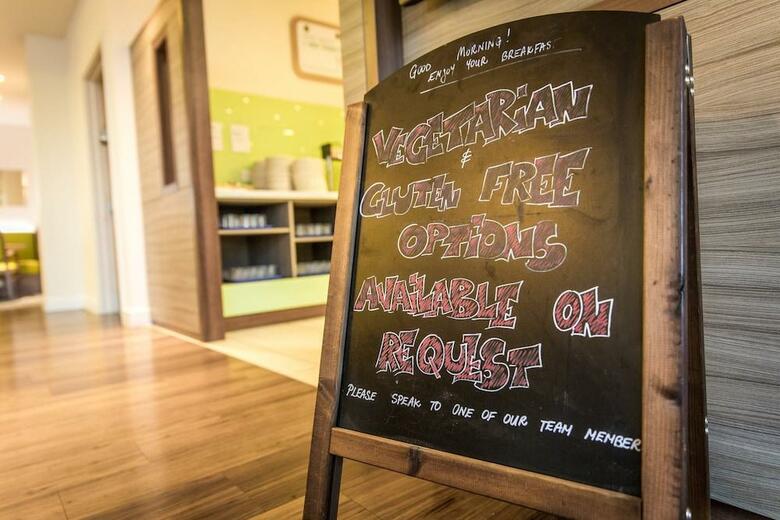 Good Morning!
Enjoy your Breakfas
VEGETARIAN
&
GLUTEN FREE
OPTIONS
AVAILABLE ON
REQUEST
PLEASE SPEAK TO ONE OF OUR TEAM MEMBER